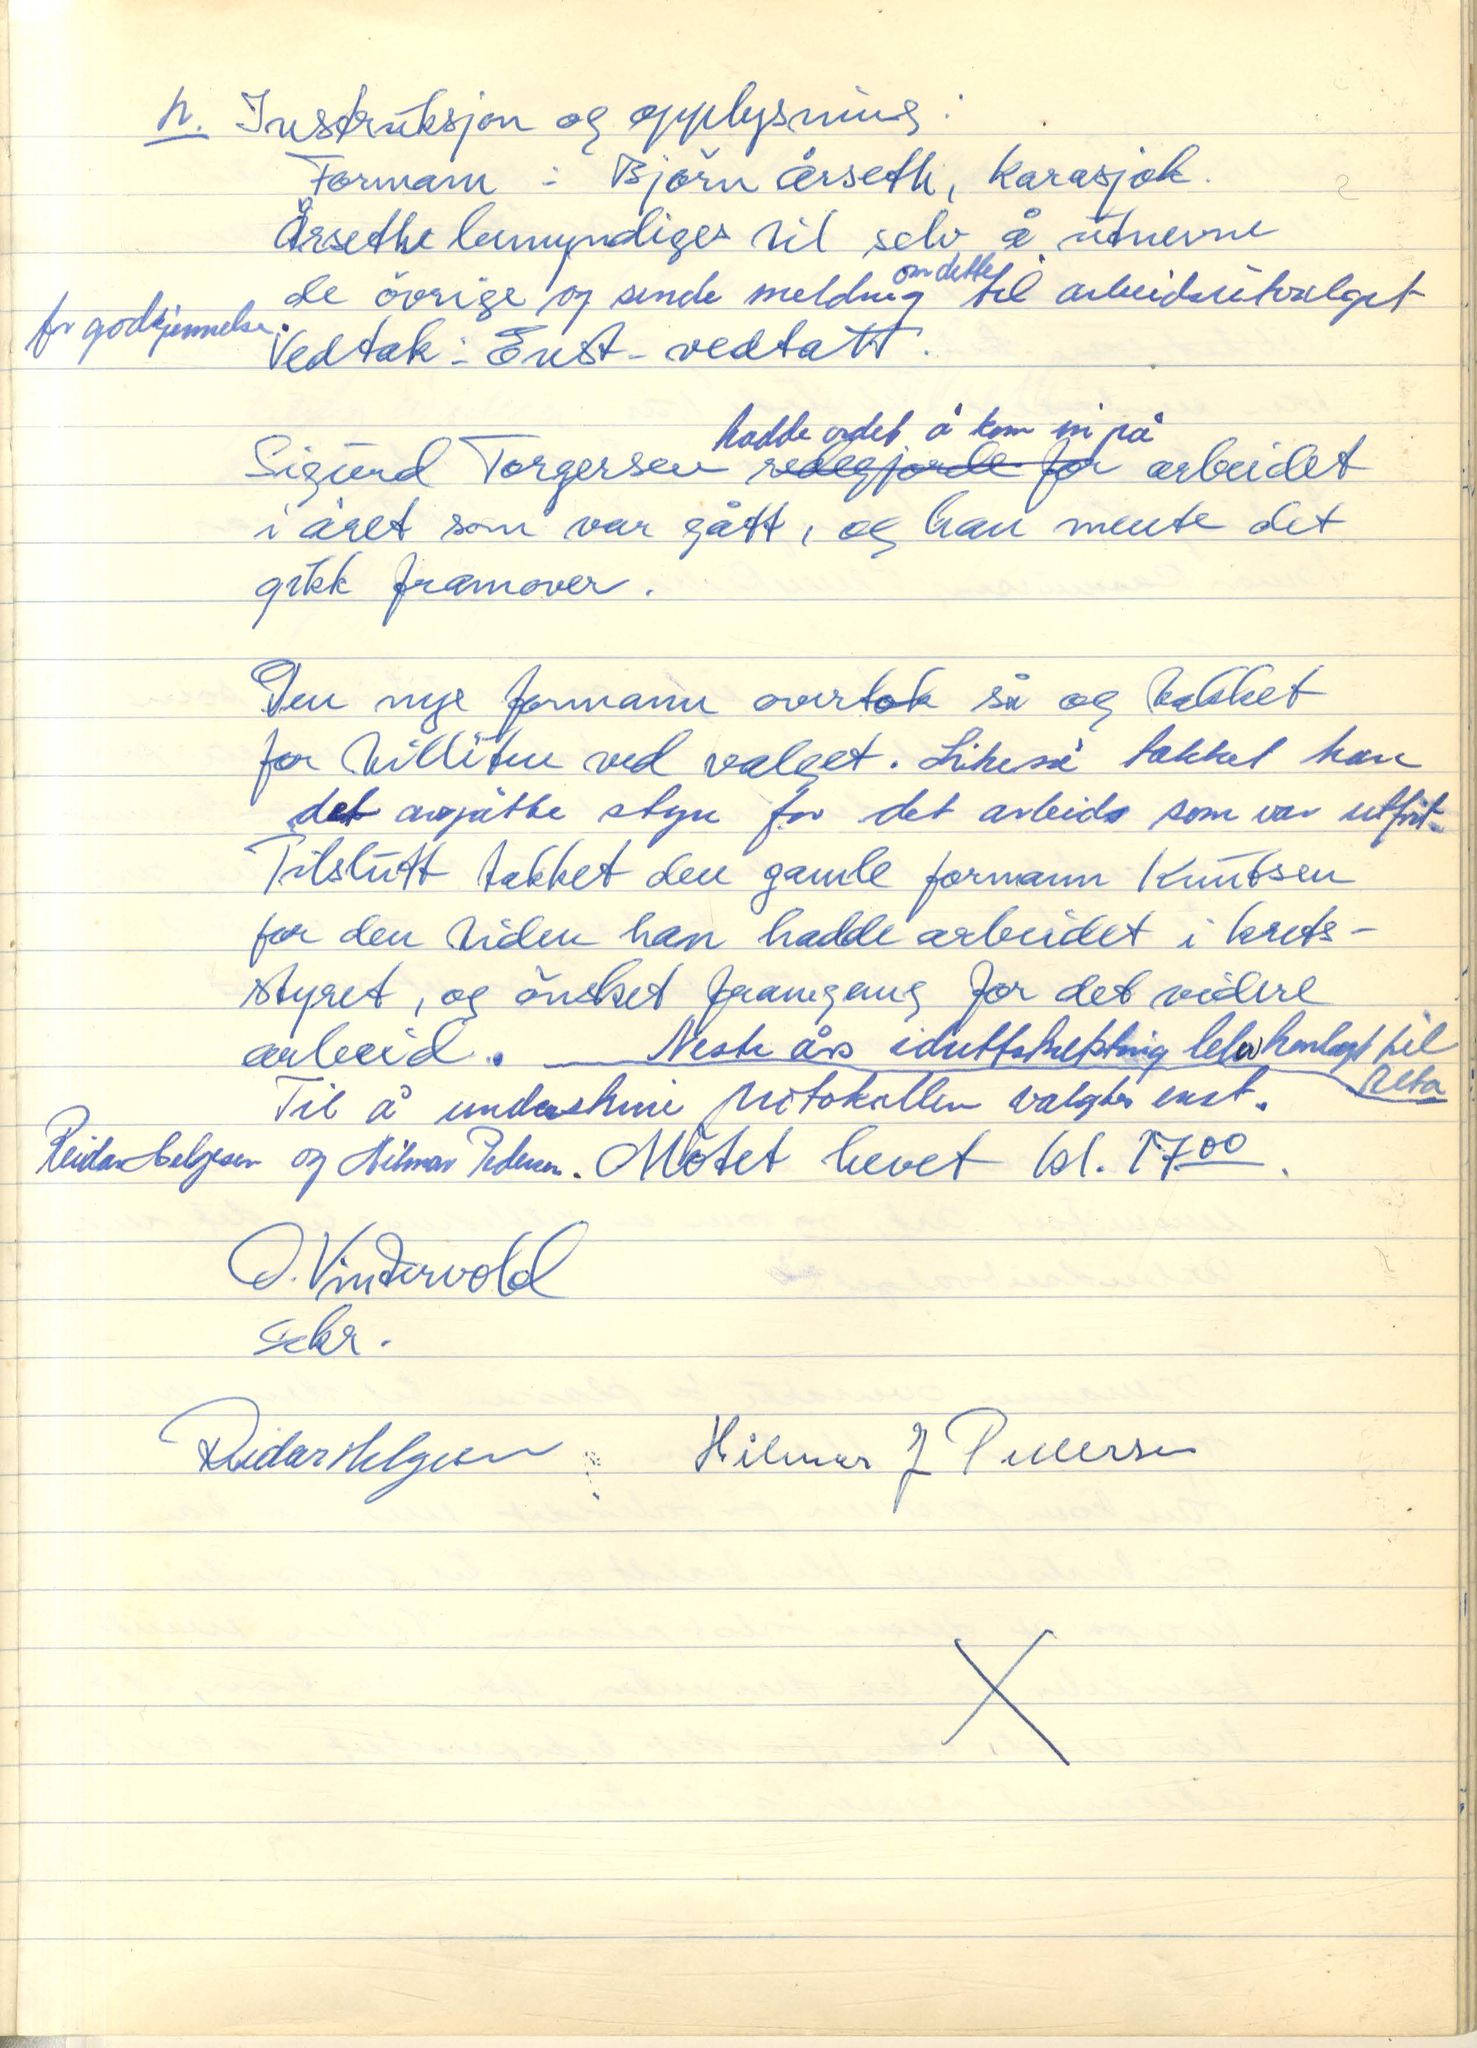 h. Instruksjon og opplysning:
Formann: Björn Årseth, Karasjok.
Årsethe bemyndiges til selv å utnevne
de övrige og sende melding om dette til arbeidsutvalget
for godkjennelse.
Vedtak: Enst. vedtatt.
Sigurd Torgersen redegjorde for hadde ordet å kom inn på arbeidet
i året som var gått, og han mente det
gikk framover.
Den nye formann overtok så og takket
for tilliten ved valget. Likeså takket han
det avgåtte styre for det arbeide som var utfört.
Tilslutt takket den gamle formann Knutsen
for den tiden han hadde arbeidet i krets-
styret, og önsket framgang for det videre
arbeid. Neste års idrettskretsting ble henlagt til
Alta
Til å underskrive protokollen valgtes enst.
Reidar Helgesen og Hilmar Pedersen. Mötet hevet kl. 17.00.
O. Vintervold
sekr.
Reidar Helgesen Hilmar J Pedersen